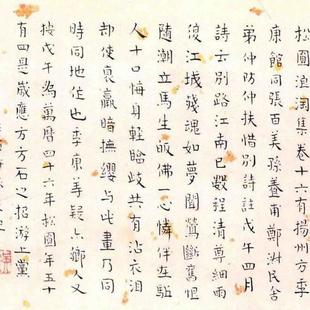 松圓浪淘集卷十六有揚州方季
康館同張百美孫養甫鄭洲民舍
弟仲防仲扶惜別詩註戊午四月
詩云別路江南已數程清尊細雨
復江城殘魂如夢聞鶯斷舊恨
隨潮立馬生皈佛一心憐伴在
人十口悔身輕臨歧共有沾衣淚
却使衰羸暗撫纓与此畫乃同
時同地作也季康等疑亦鄉人又
按戊午為萬曆四十六年松圓年五十
有四是歲應方方石之招游上黨